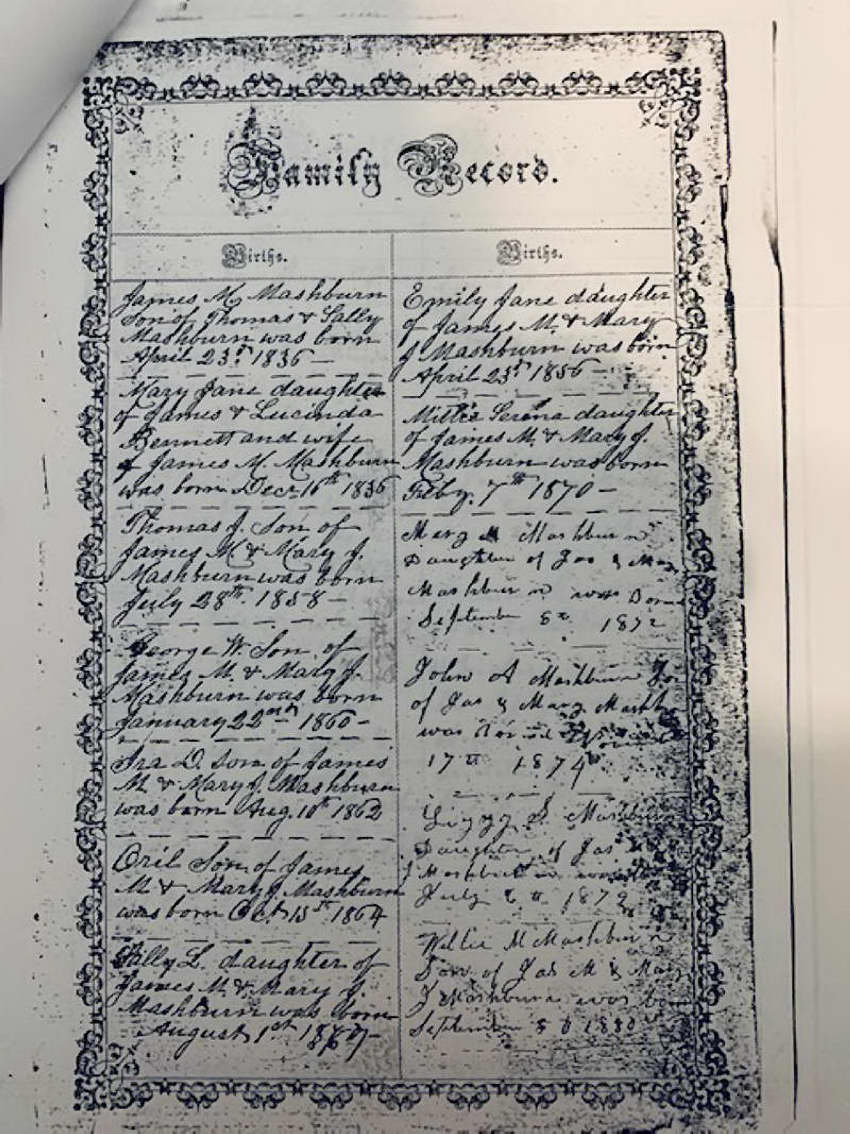 Family Record.
Births.
James M. Mashburn
Son of Thomas & Sally
Mashburn was born
April 23rd 1836 —
Mary Jane daughter
of James & Lucinda
Bennett and wife
of James M. Mashburn
was born Decr 16th 1836
Thomas J. Son of
James M. & Mary J.
Mashburn was born
July 28th 1858 —
George W. Son of
James M. & Mary J.
Mashburn was born
January 22nd 1860 —
Ira D. Son of James
M. & Mary J. Mashburn
was born Aug. 10th 1862
Oril Son of James
M. & Mary J. Mashburn
was born Oct. 15th 1864
Sally L. daughter of
James M. & Mary J.
Mashburn was born
August 1st
Births.
Emily Jane daughter
of James M. & Mary
J Mashburn was born
April 23rd 1856 —
Millie Serena daughter
of James M. & Mary J.
Mashburn was born
Feby. 7th 1870 —
Mary M Mashburn
Daughter of Jas & Mary
Mashburn was Born
September 8th 1872
John A Mashburn Son
of Jas & Mary
was
17th 1874
S. Mashburn
Daughter of Jas
J Mashburn
July
Willie M Mashburn
Son of Jas M & Mary
J Mashburn was
September 1880